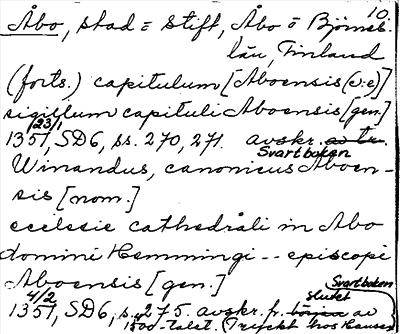 10.
Åbo, stad o stift, Åbo o Björneb.
län, Finland
(forts.) capitulum [Aboensis (o:e)]
sigillum capituli Aboensis [gen.]
23/1
1351, SD6, ss. 270, 271. avskr. av tr.
Svartboken
Winandus, canonicus Aboen-
sis [nom.]
ecclesie cathedrali in Abo
domini Hemmingi -- episcopi
Aboensis [gen.]
Svartboken
4/2 slutet
1351, SD6, s. 275. avskr. fr. början av
1500-talet. (Tryckt hos Hausen)